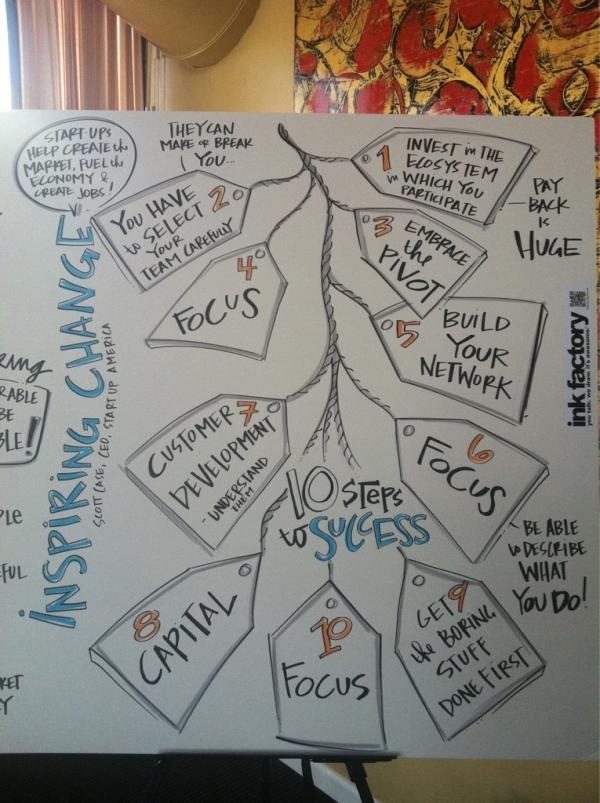 START UPS
HELP CREATE the
MARKET, FUEL the
ECONOMY &
CREATE JOBS!
INSPIRING CHANGE
SCOTT CASE, CEO, START UP AMERICA
THEY CAN
MAKE OR BREAK
YOU...
1
INVEST in THE
ECOSYSTEM
in WHICH YOU
PARTICIPATE
PAY
BACK
IS
HUGE
2
YOU HAVE
to SELECT
YOUR
TEAM CAREFULLY
3
EMBRACE
the
PIVOT
4
FOCUS
5
BUILD
YOUR
NETWORK
ink factory
you talk. we draw. it's awesome.
6
FOCUS
BE ABLE
to DESCRIBE
WHAT
YOU DO!
7
CUSTOMER
DEVELOPMENT
- UNDERSTAND
THEM
10 STEPS
to SUCCESS
8
CAPITAL
9
GET
the BORING
STUFF
DONE FIRST
10
FOCUS